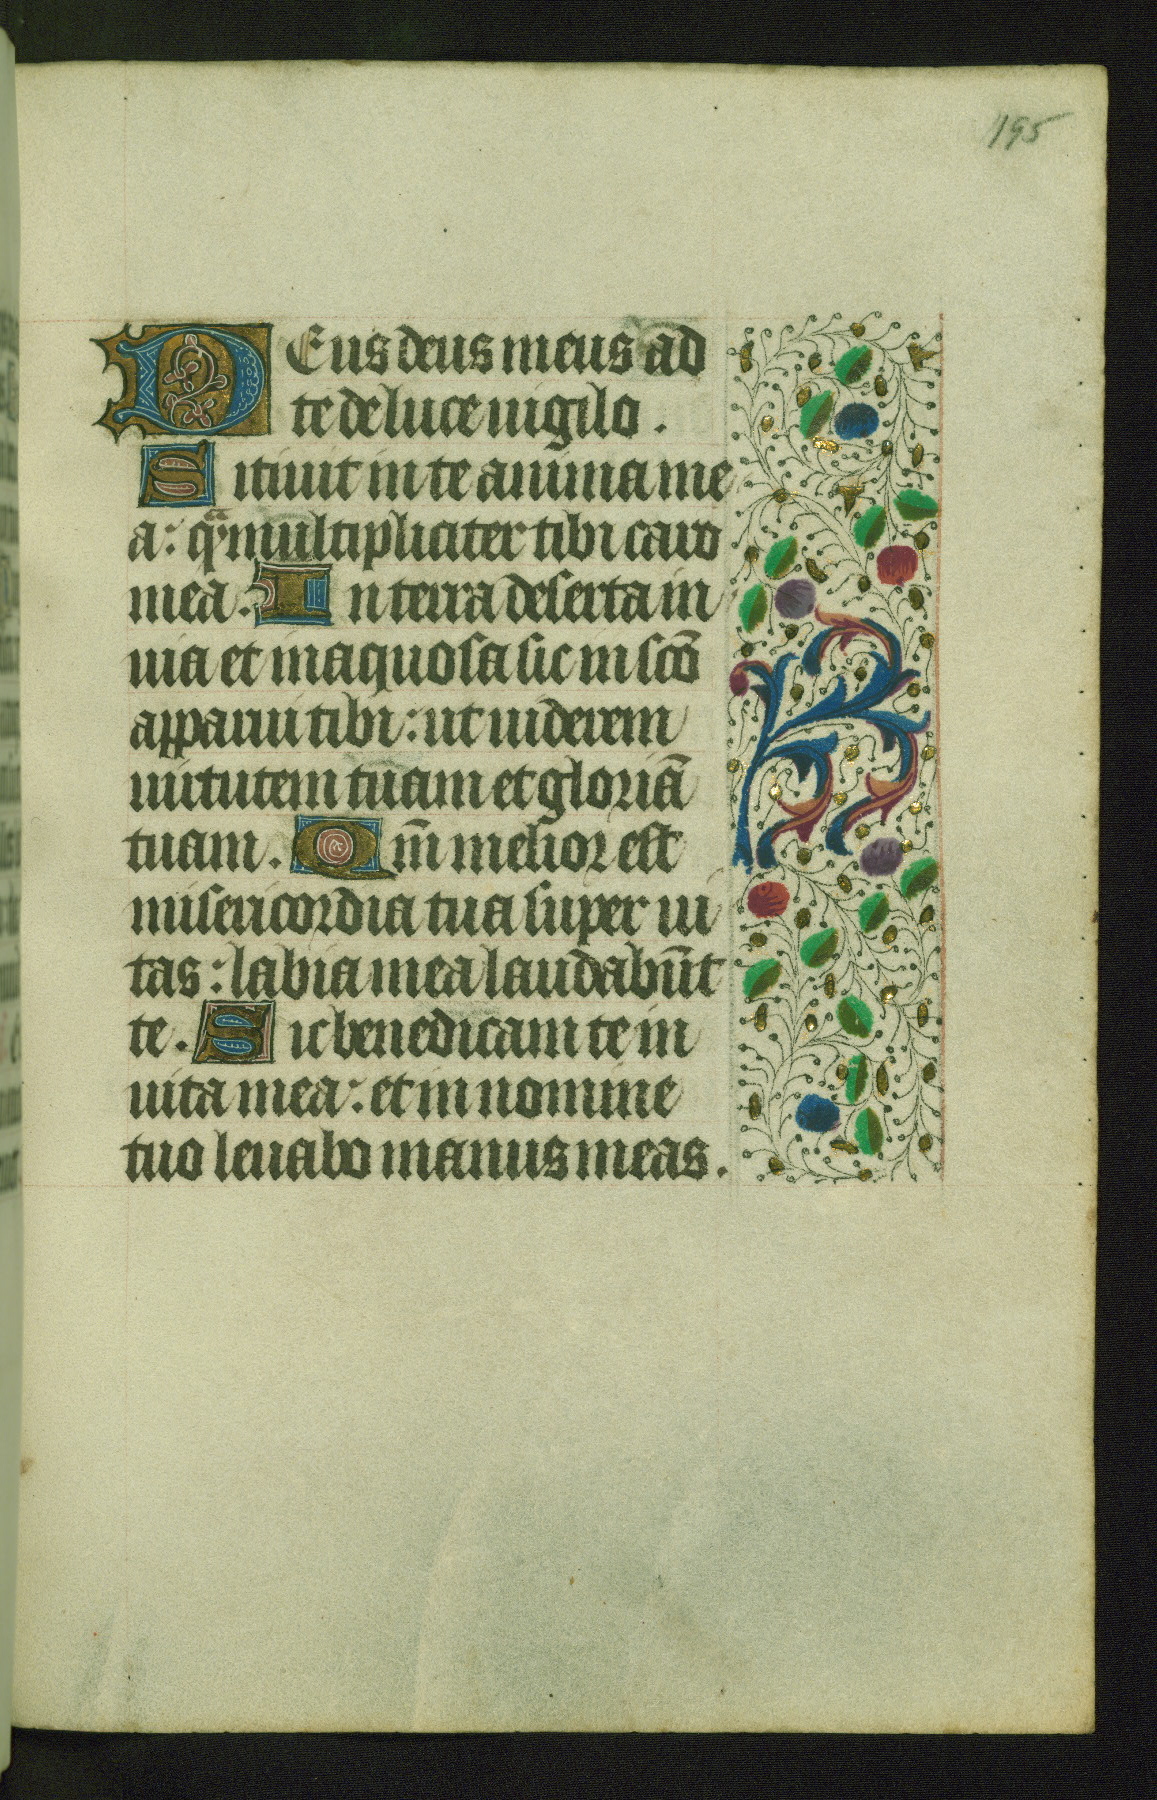 195
Deus deus meus ad
te de luce uigilo.
Sitiuit in te anima me
a: q̈m multipliciter tibi caro
mea. In terra deserta in
uia et inaquosa sic in sc̄o
apparui tibi: ut uiderem
uirtutem tuam et gloriā
tuam. Qm̄ melior est
misericordia tua super ui
tas: labia mea laudabūt
te. Sic benedicam te in
uita mea: et in nomine
tuo leuabo manus meas.